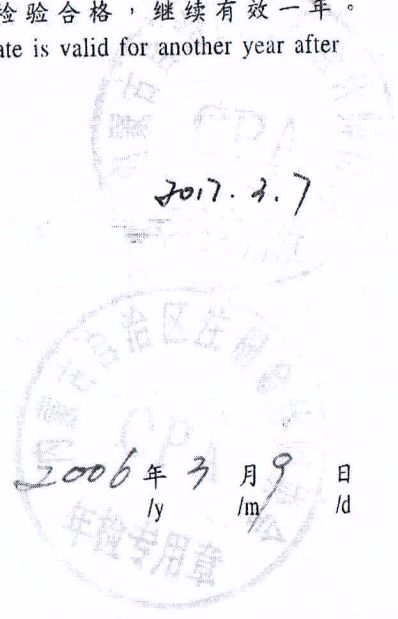 检验合格，继续有效一年。
ate is valid for another year after
CPA
2017.3.7
内蒙古自治区注册会计师协会
CPA
2006年3月9日
/y /m /d
年检专用章